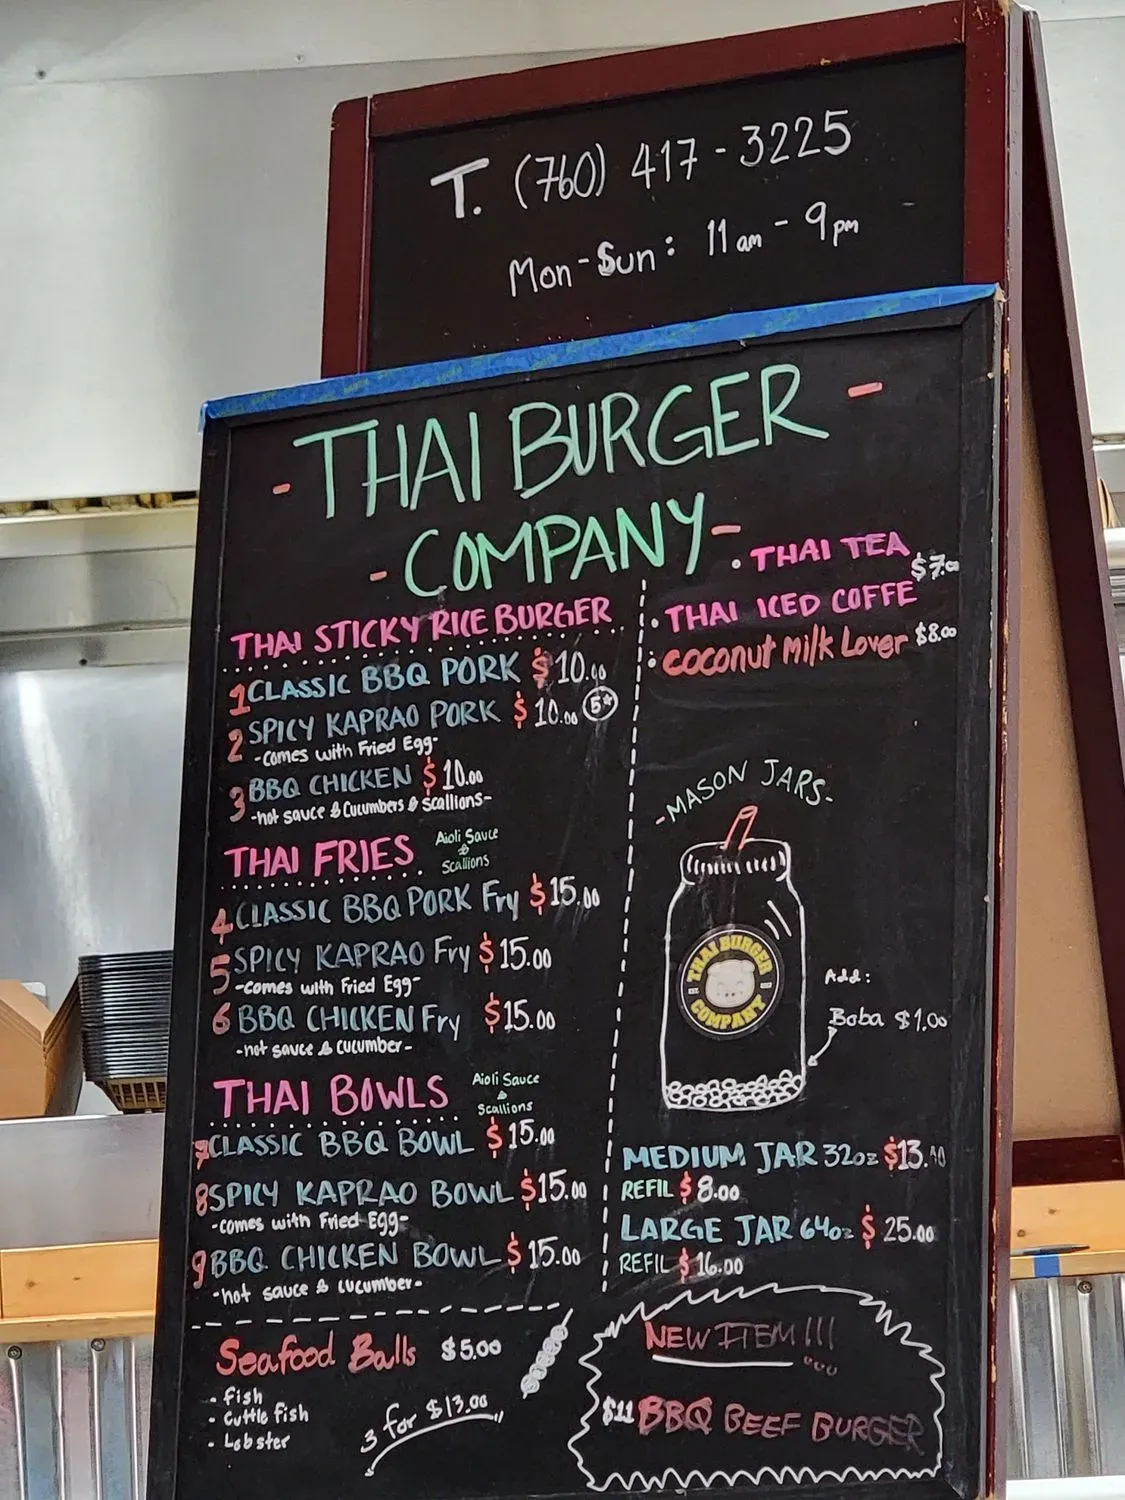 T. (760) 417-3225
Mon-Sun: 11am - 9pm
- THAI BURGER -
- COMPANY -
THAI STICKY RICE BURGER
1 CLASSIC BBQ PORK $10.00
2 SPICY KAPRAO PORK $10.00 5*
-comes with Fried Egg-
3 BBQ CHICKEN $10.00
-hot sauce & Cucumbers & Scallions-
THAI FRIES
Aioli Sauce
&
Scallions
4 CLASSIC BBQ PORK Fry $15.00
5 SPICY KAPRAO Fry $15.00
-comes with Fried Egg-
6 BBQ CHICKEN Fry $15.00
-hot sauce & cucumber-
THAI BOWLS
Aioli Sauce
&
Scallions
7 CLASSIC BBQ BOWL $15.00
8 SPICY KAPRAO BOWL $15.00
-comes with Fried Egg-
9 BBQ CHICKEN BOWL $15.00
-hot sauce & cucumber-
Seafood Balls $5.00
- fish
- cuttle fish
- Lobster
3 for $13.00
• THAI TEA $7.00
• THAI ICED COFFE
• Coconut Milk Lover $8.00
-MASON JARS-
THAI BURGER
COMPANY
Add:
Boba $1.00
MEDIUM JAR 32oz $13.00
REFIL $8.00
LARGE JAR 64oz $25.00
REFIL $16.00
NEW ITEM!!!
$11 BBQ BEEF BURGER